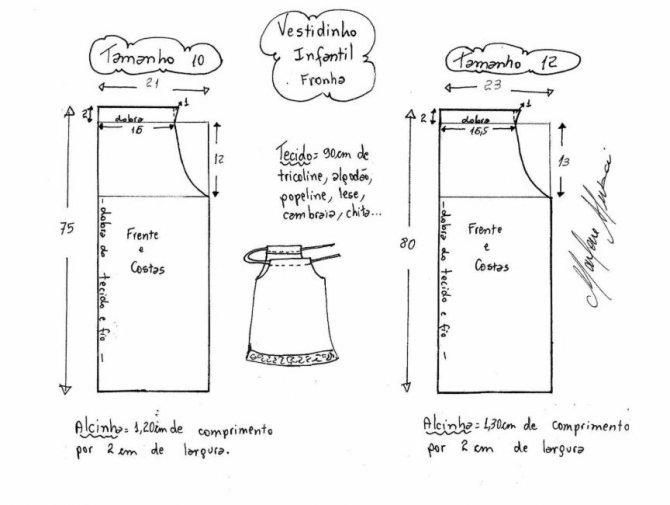 Vestidinho
Infantil
Fronha
Tamanho 10
21
1
2
dobra
16
12
75
Frente
e
Costas
-dobra do tecido e fio-
Alcinha= 1,20cm de comprimento
por 2 cm de largura.
Tecido= 90cm de
tricoline, algodão,
popeline, lese,
cambraia, chita...
Tamanho 12
23
1
2
dobra
16,5
13
80
Frente
e
Costas
-dobra do tecido e fio-
Alcinha= 1,30cm de comprimento
por 2 cm de largura